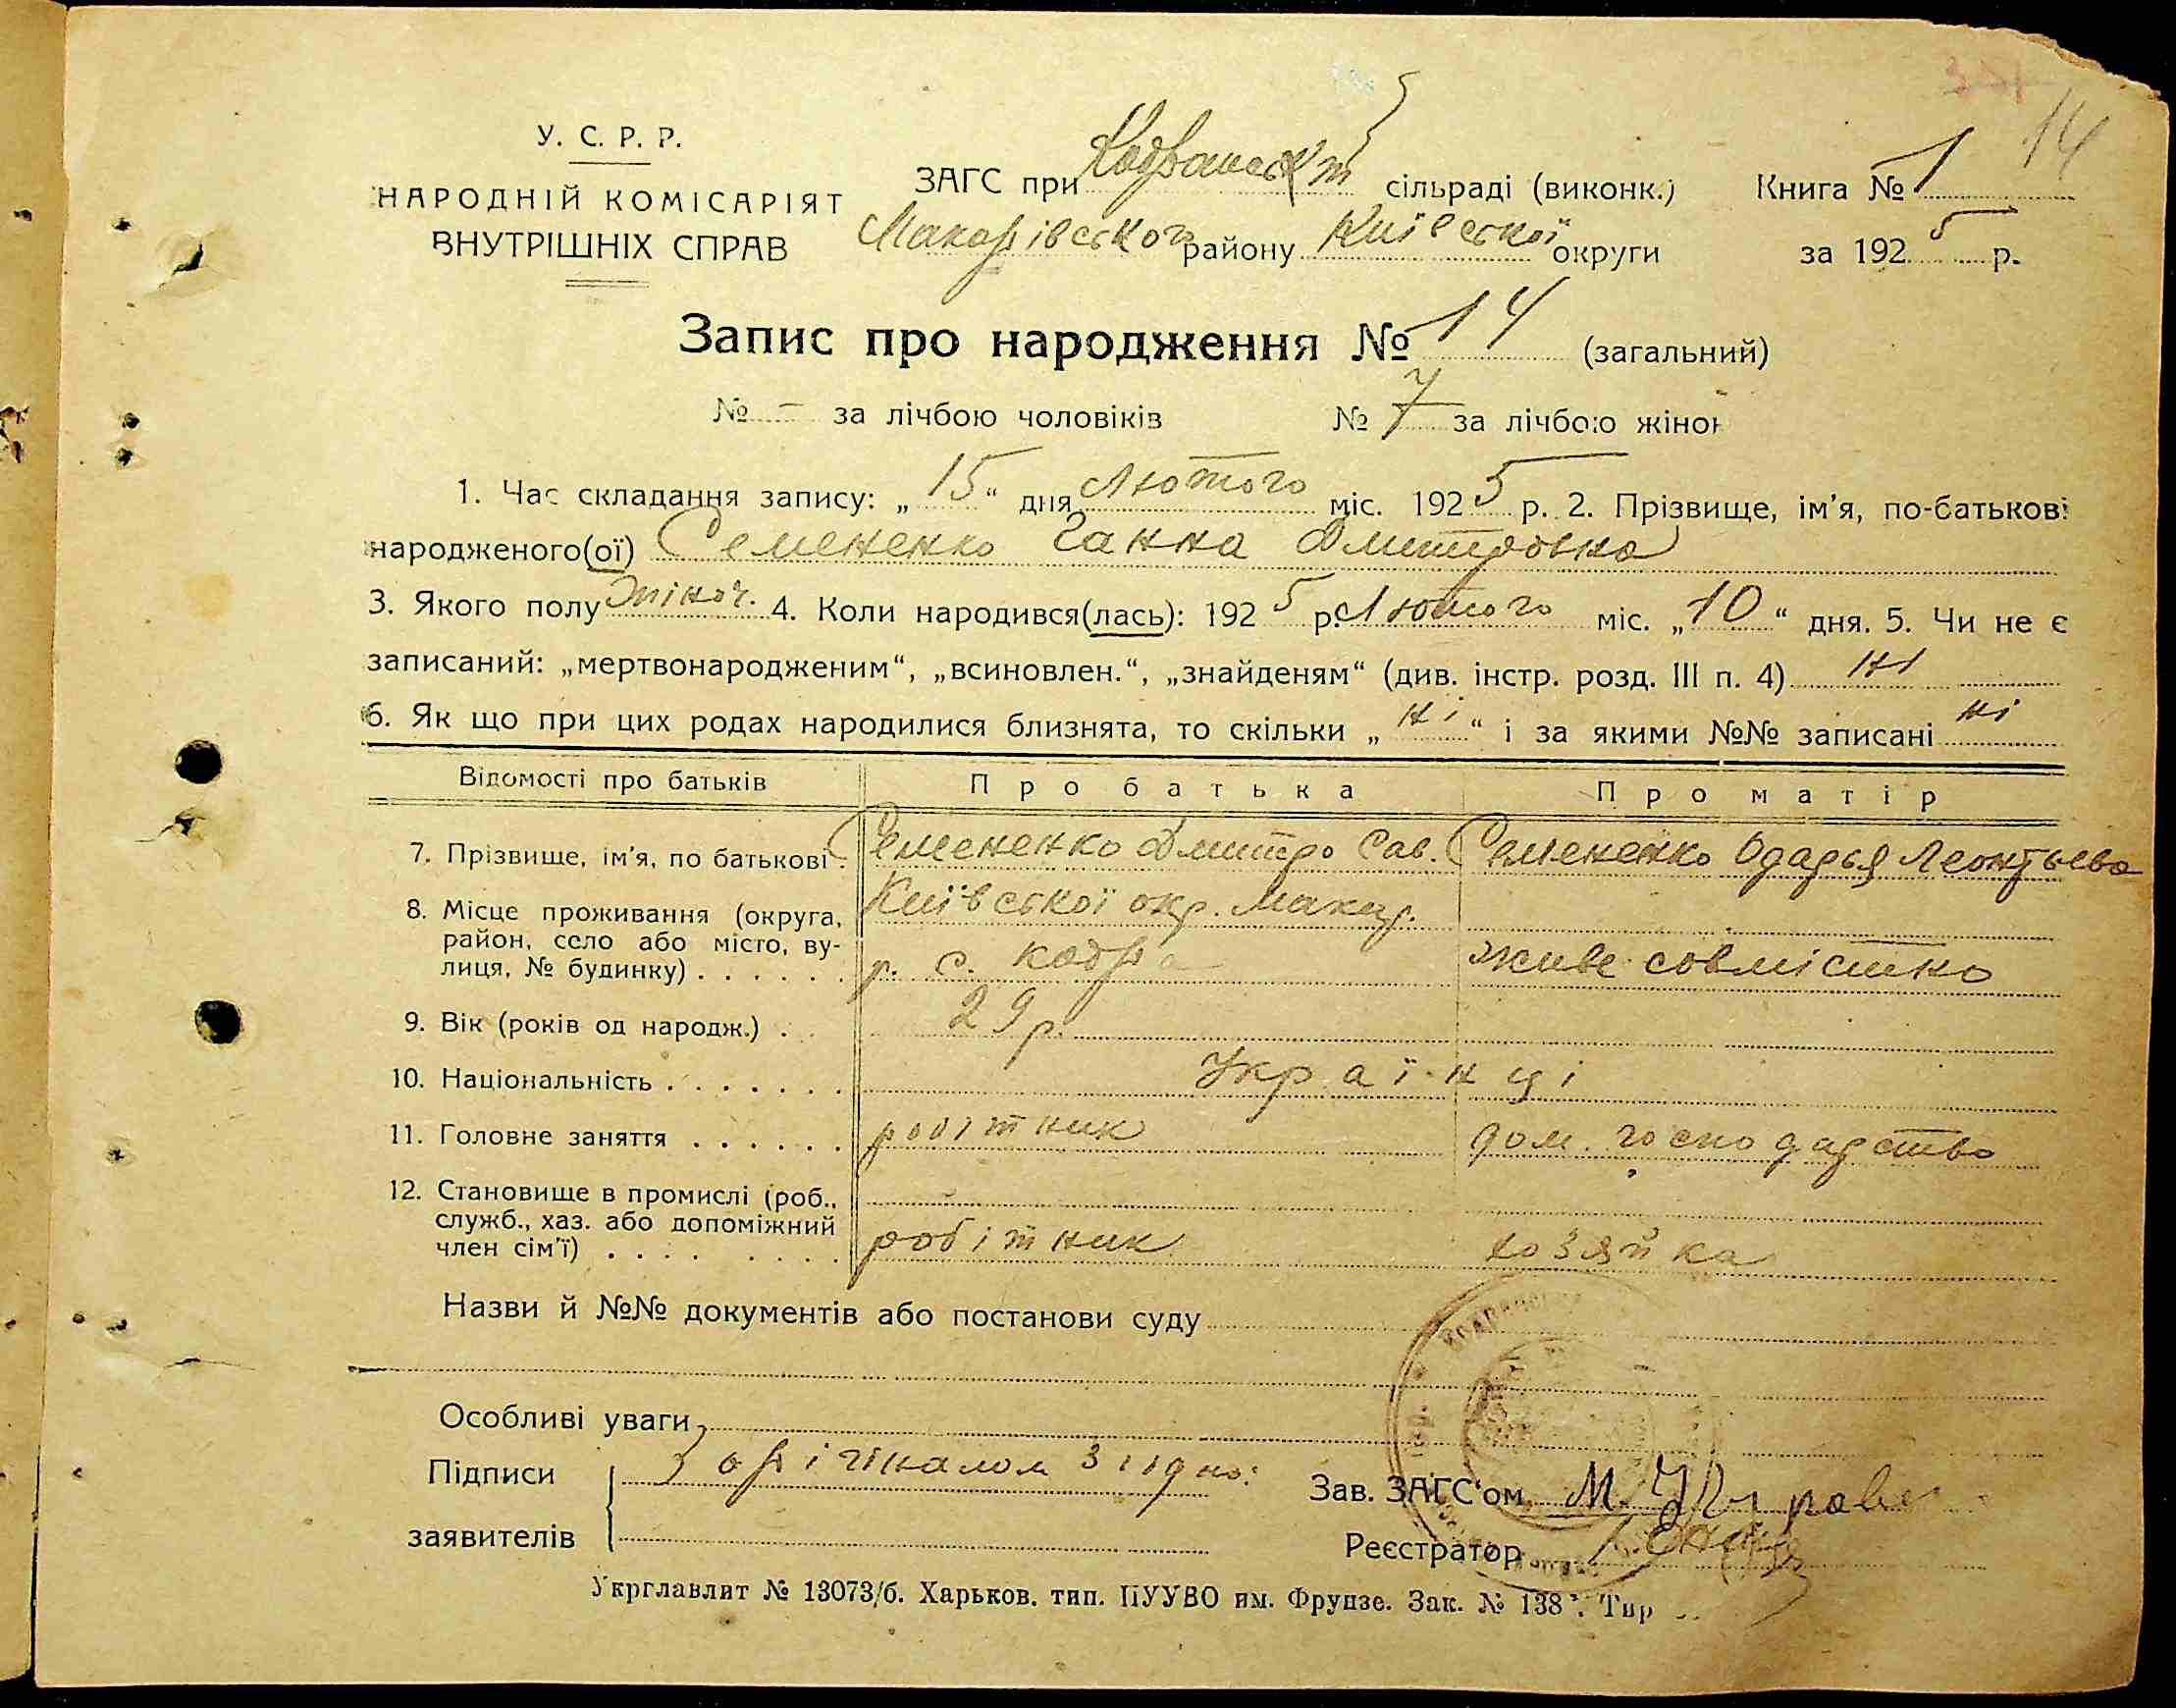 14
У. С. Р. Р.
НАРОДНІЙ КОМІСАРІЯТ
ВНУТРІШНІХ СПРАВ
ЗАГС при Кодранський сільраді (виконк.) Книга № 1
Макарівського району Київської округи за 1925 р.
Запис про народження № 14 (загальний)
№ – за лічбою чоловіків № 7 за лічбою жінок
1. Час складання запису: „15“ дня Лютого міс. 1925 р. 2. Прізвище, ім'я, по-батькові
народженого(ої) Семененко Ганна Дмитровна
3. Якого полу жіноч. 4. Коли народився(лась): 1925 р. Лютого міс. „10“ дня. 5. Чи не є
записаний: „мертвонародженим“, „всиновлен.“, „знайденям“ (див. інстр. розд. III п. 4) ні
6. Як що при цих родах народилися близнята, то скільки „ні“ і за якими №№ записані ні
Відомості про батьків Про батька Про матір
7. Прізвище, ім'я, по батькові Семененко Дмитро Сав. Семененко Одарья Леонтьева
8. Місце проживання (округа, район, село або місто, вулиця, № будинку) . . . . . . Київської окр. Макар. р. с. Кодра живе совмістно
9. Вік (років од народж.) . . 29 р.
10. Національність . . . . . . . Українці
11. Головне заняття . . . . . . робітник дом. господарство
12. Становище в промислі (роб., служб., хаз. або допоміжний член сім'ї) . . . . . . . . робітник хозяйка
Назви й №№ документів або постанови суду
Особливі уваги
Підписи З орігіналом згідно: Зав. ЗАГС'ом М.
заявителів Реєстратор
Укрглавлит № 13073/б. Харьков. тип. ПУУВО им. Фрунзе. Зак. № 138 Тир